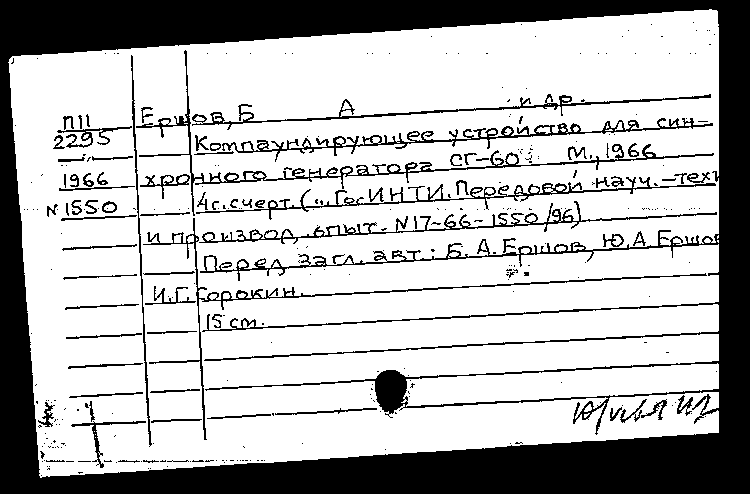 П11 Ершов, Б А и др.
2295 Компаундирующее устройство для син-
1966 хронного генератора СГ-60 М., 1966
N 1550 4с.счерт. („ГосИНТИ. Передовой науч.-техн
и производ, опыт. N17-66-1550/96)
Перед загл. авт: Б. А. Ершов, Ю. А Ершов
И.Г. Сорокин.
15 cm.